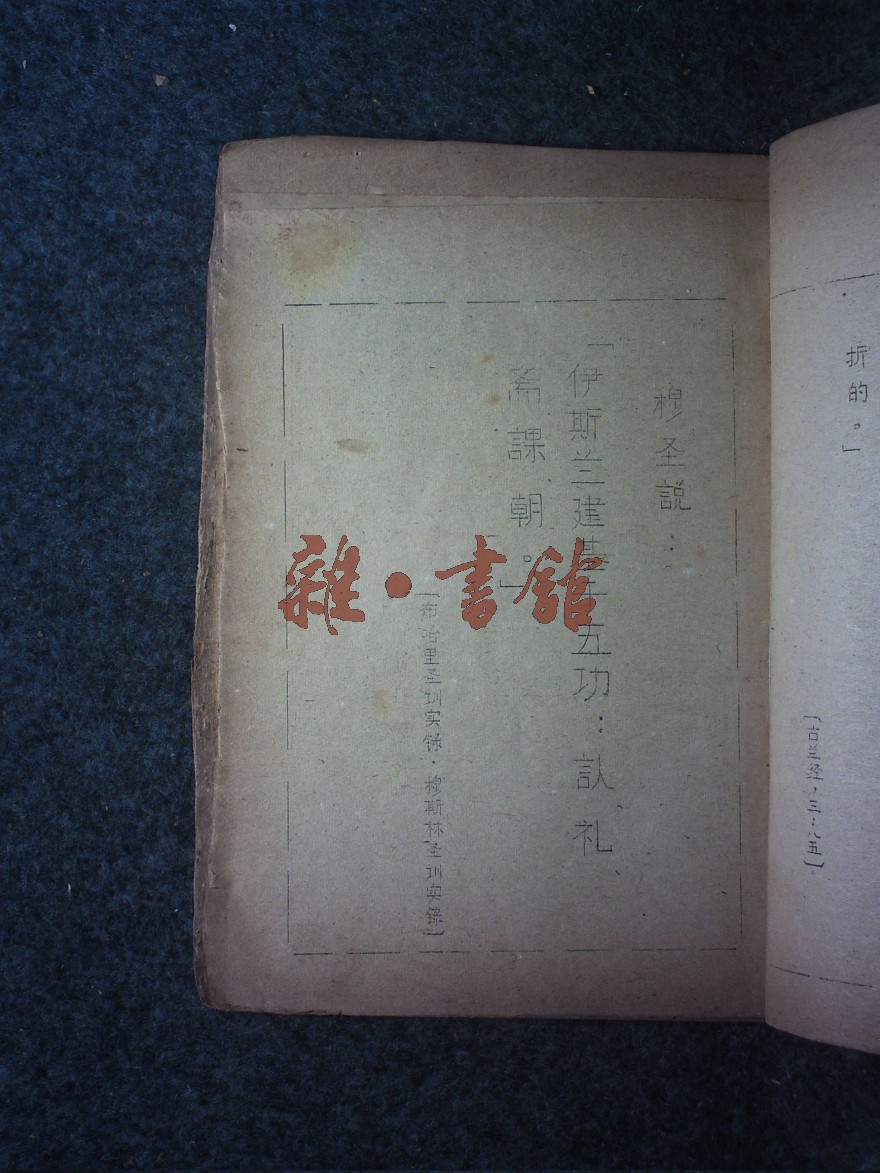 折的。」
〔古兰经，三：八五〕
穆圣説：
「伊斯兰建基于五功：认礼
斋課朝。」
〔布哈里圣训实録·穆斯林圣训实録〕
雜·書館